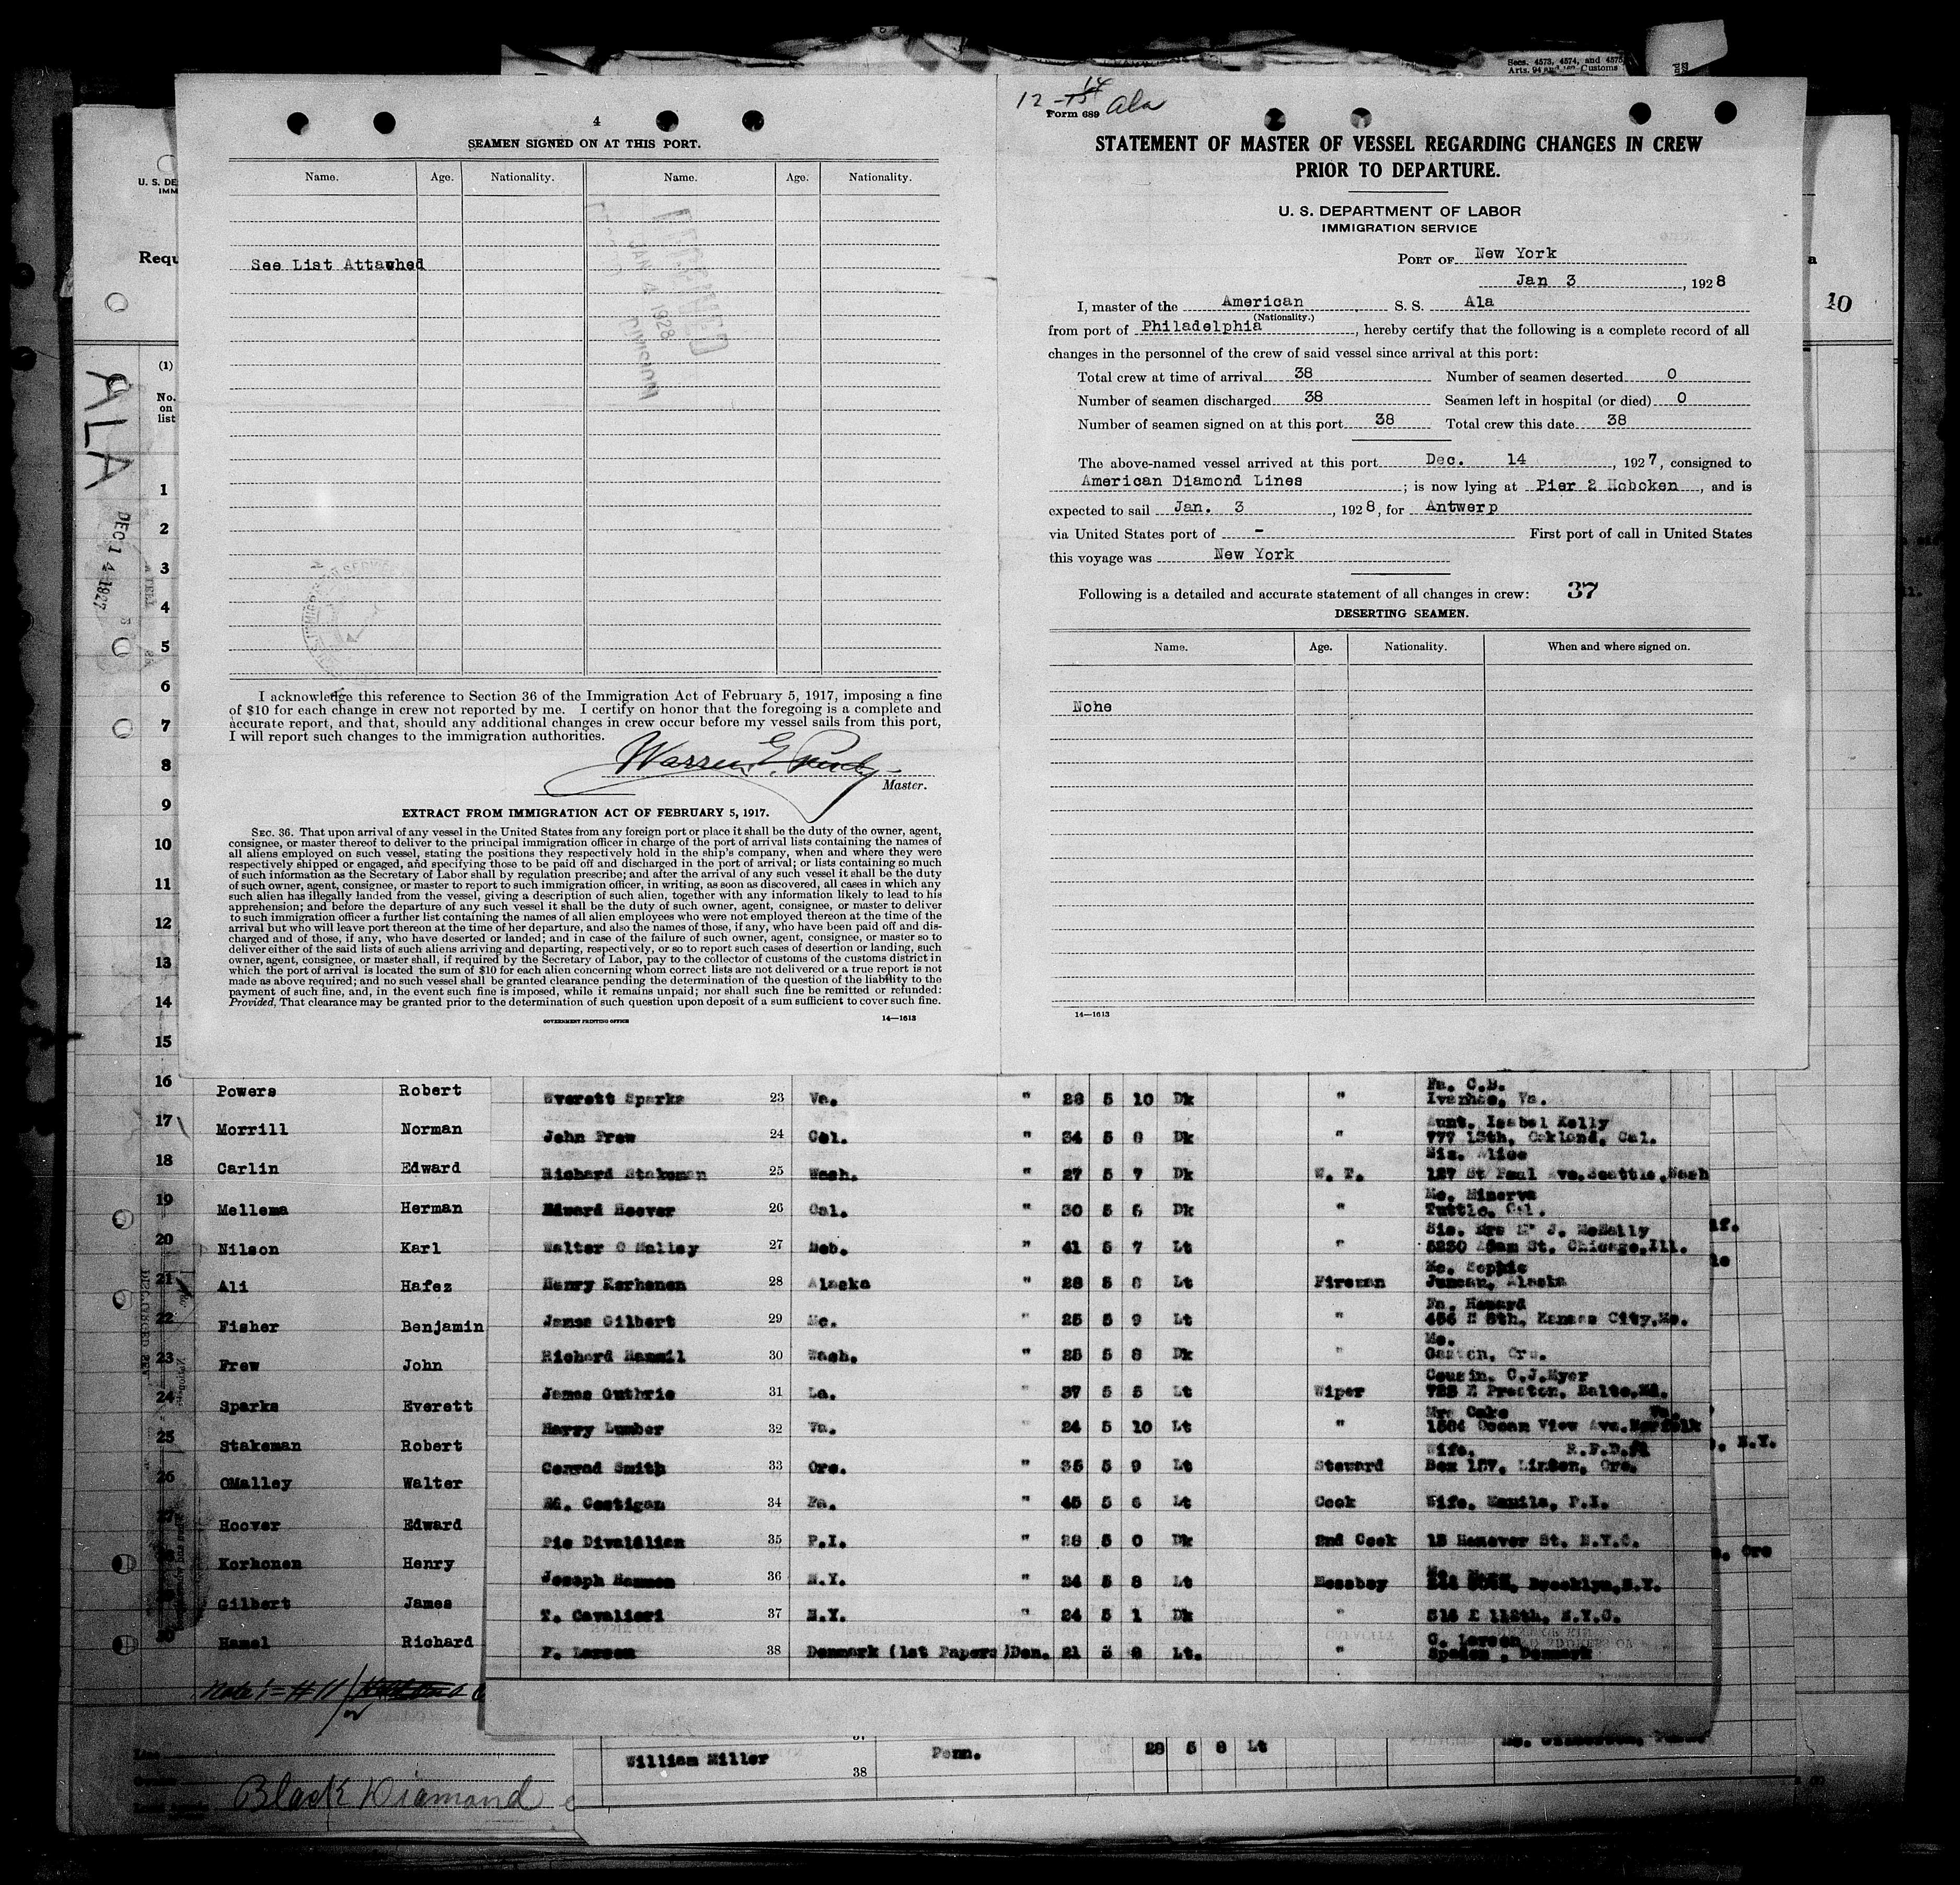 Secs. 4573, 4574, and 4575,
Customs
4
SEAMEN SIGNED ON AT THIS PORT.
Name. Age. Nationality. Name. Age. Nationality.
See List Attached
JAN 4 1928
DIVISION
I acknowledge this reference to Section 36 of the Immigration Act of February 5, 1917, imposing a fine
of $10 for each change in crew not reported by me. I certify on honor that the foregoing is a complete and
accurate report, and that, should any additional changes in crew occur before my vessel sails from this port,
I will report such changes to the immigration authorities.
Warren E.
Master.
EXTRACT FROM IMMIGRATION ACT OF FEBRUARY 5, 1917.
SEC. 36. That upon arrival of any vessel in the United States from any foreign port or place it shall be the duty of the owner, agent,
consignee, or master thereof to deliver to the principal immigration officer in charge of the port of arrival lists containing the names of
all aliens employed on such vessel, stating the positions they respectively hold in the ship's company, when and where they were
respectively shipped or engaged, and specifying those to be paid off and discharged in the port of arrival; or lists containing so much
of such information as the Secretary of Labor shall by regulation prescribe; and after the arrival of any such vessel it shall be the duty
of such owner, agent, consignee, or master to report to such immigration officer, in writing, as soon as discovered, all cases in which any
such alien has illegally landed from the vessel, giving a description of such alien, together with any information likely to lead to his
apprehension; and before the departure of any such vessel it shall be the duty of such owner, agent, consignee, or master to deliver
to such immigration officer a further list containing the names of all alien employees who were not employed thereon at the time of the
arrival but who will leave port thereon at the time of her departure, and also the names of those, if any, who have been paid off and dis-
charged and of those, if any, who have deserted or landed; and in case of the failure of such owner, agent, consignee, or master so to
deliver either of the said lists of such aliens arriving and departing, respectively, or so to report such cases of desertion or landing, such
owner, agent, consignee, or master shall, if required by the Secretary of Labor, pay to the collector of customs of the customs district in
which the port of arrival is located the sum of $10 for each alien concerning whom correct lists are not delivered or a true report is not
made as above required; and no such vessel shall be granted clearance pending the determination of the question of the liability to the
payment of such fine, and, in the event such fine is imposed, while it remains unpaid; nor shall such fine be remitted or refunded:
Provided, That clearance may be granted prior to the determination of such question upon deposit of a sum sufficient to cover such fine.
GOVERNMENT PRINTING OFFICE 14—1613
12 - 14 Ala
Form 689
STATEMENT OF MASTER OF VESSEL REGARDING CHANGES IN CREW
PRIOR TO DEPARTURE.
U. S. DEPARTMENT OF LABOR
IMMIGRATION SERVICE
PORT OF New York
Jan 3, 1928
I, master of the American S. S. Ala
(Nationality.)
from port of Philadelphia, hereby certify that the following is a complete record of all
changes in the personnel of the crew of said vessel since arrival at this port:
Total crew at time of arrival 38 Number of seamen deserted 0
Number of seamen discharged 38 Seamen left in hospital (or died) 0
Number of seamen signed on at this port 38 Total crew this date 38
The above-named vessel arrived at this port Dec. 14, 1927, consigned to
American Diamond Lines; is now lying at Pier 2 Hoboken, and is
expected to sail Jan. 3, 1928, for Antwerp
via United States port of - First port of call in United States
this voyage was New York
Following is a detailed and accurate statement of all changes in crew: 37
DESERTING SEAMEN.
Name. Age. Nationality. When and where signed on.
None
14—1613
U. S. DE
IMM
Requ
(1)
No.
on
list
ALA
DEC 14 1927
10
1
2
3
4
5
6
7
8
9
10
11
12
13
14
15
16 Powers Robert
17 Morrill Norman
18 Carlin Edward
19 Mellema Herman
20 Nilson Karl
21 Ali Hafez
22 Fisher Benjamin
23 Frew John
24 Sparks Everett
25 Stakeman Robert
26 OMalley Walter
27 Hoover Edward
Korhonen Henry
Gilbert James
30 Hamel Richard
Everett Sparks 23 Va. " 28 5 10 Dk " Fa. C.B. Ivanhoe, Va.
John Frew 24 Cal. " 34 5 8 Dk " Aunt. Isabel Kelly 777 13th, Oakland, Cal.
Richard Stakeman 25 Wash. " 27 5 7 Dk W. T. Sis. Alice 127 St Paul Ave. Seattle, Wash
Edward Hoover 26 Cal. " 30 5 6 Dk " Mo. Minerva Tuttle, Cal.
Walter O Malley 27 Neb. " 41 5 7 Lt " Sis. Mrs J. McNally 5230 Adam St. Chicago, Ill.
Henry Korhonen 28 Alaska " 28 5 8 Lt Fireman Mo. Sophie Juneau, Alaska
James Gilbert 29 Mo. " 25 5 9 Lt " Fa. Howard 456 E 8th, Kansas City, Mo.
Richard Hammil 30 Wash. " 25 5 8 Dk " Mo. Gaston, Ore.
James Guthrie 31 La. " 37 5 5 Lt Wiper Cousin, C.J.Myer 723 E Preston, Balto, Md.
Harry Lumber 32 Va. " 24 5 10 Lt " Mrs Cake 1504 Ocean View Ave. Norfolk Va.
Conrad Smith 33 Ore. " 35 5 9 Lt Steward Wife, R.F.D. Box 157, Linton, Ore.
M. Costigan 34 Pa. " 45 5 6 Lt Cook Wife. Manila, P.I.
Pio 35 P.I. " 28 5 0 Dk 2nd Cook 13 Hanover St. N.Y.C.
Joseph Hammon 36 N.Y. " 24 5 8 Lt Messboy Brooklyn, N.Y.
T. Cavalieri 37 N.Y. " 24 5 1 Dk " 316 E 112th, N.Y.C.
F. Larsen 38 Denmark (1st Papers) Den. 21 5 8 Lt. " C. Larsen Denmark
N.Y.
Ore
Note 1 = #11
Black Diamond
William Miller 38 Penn. 28 5 8 Lt